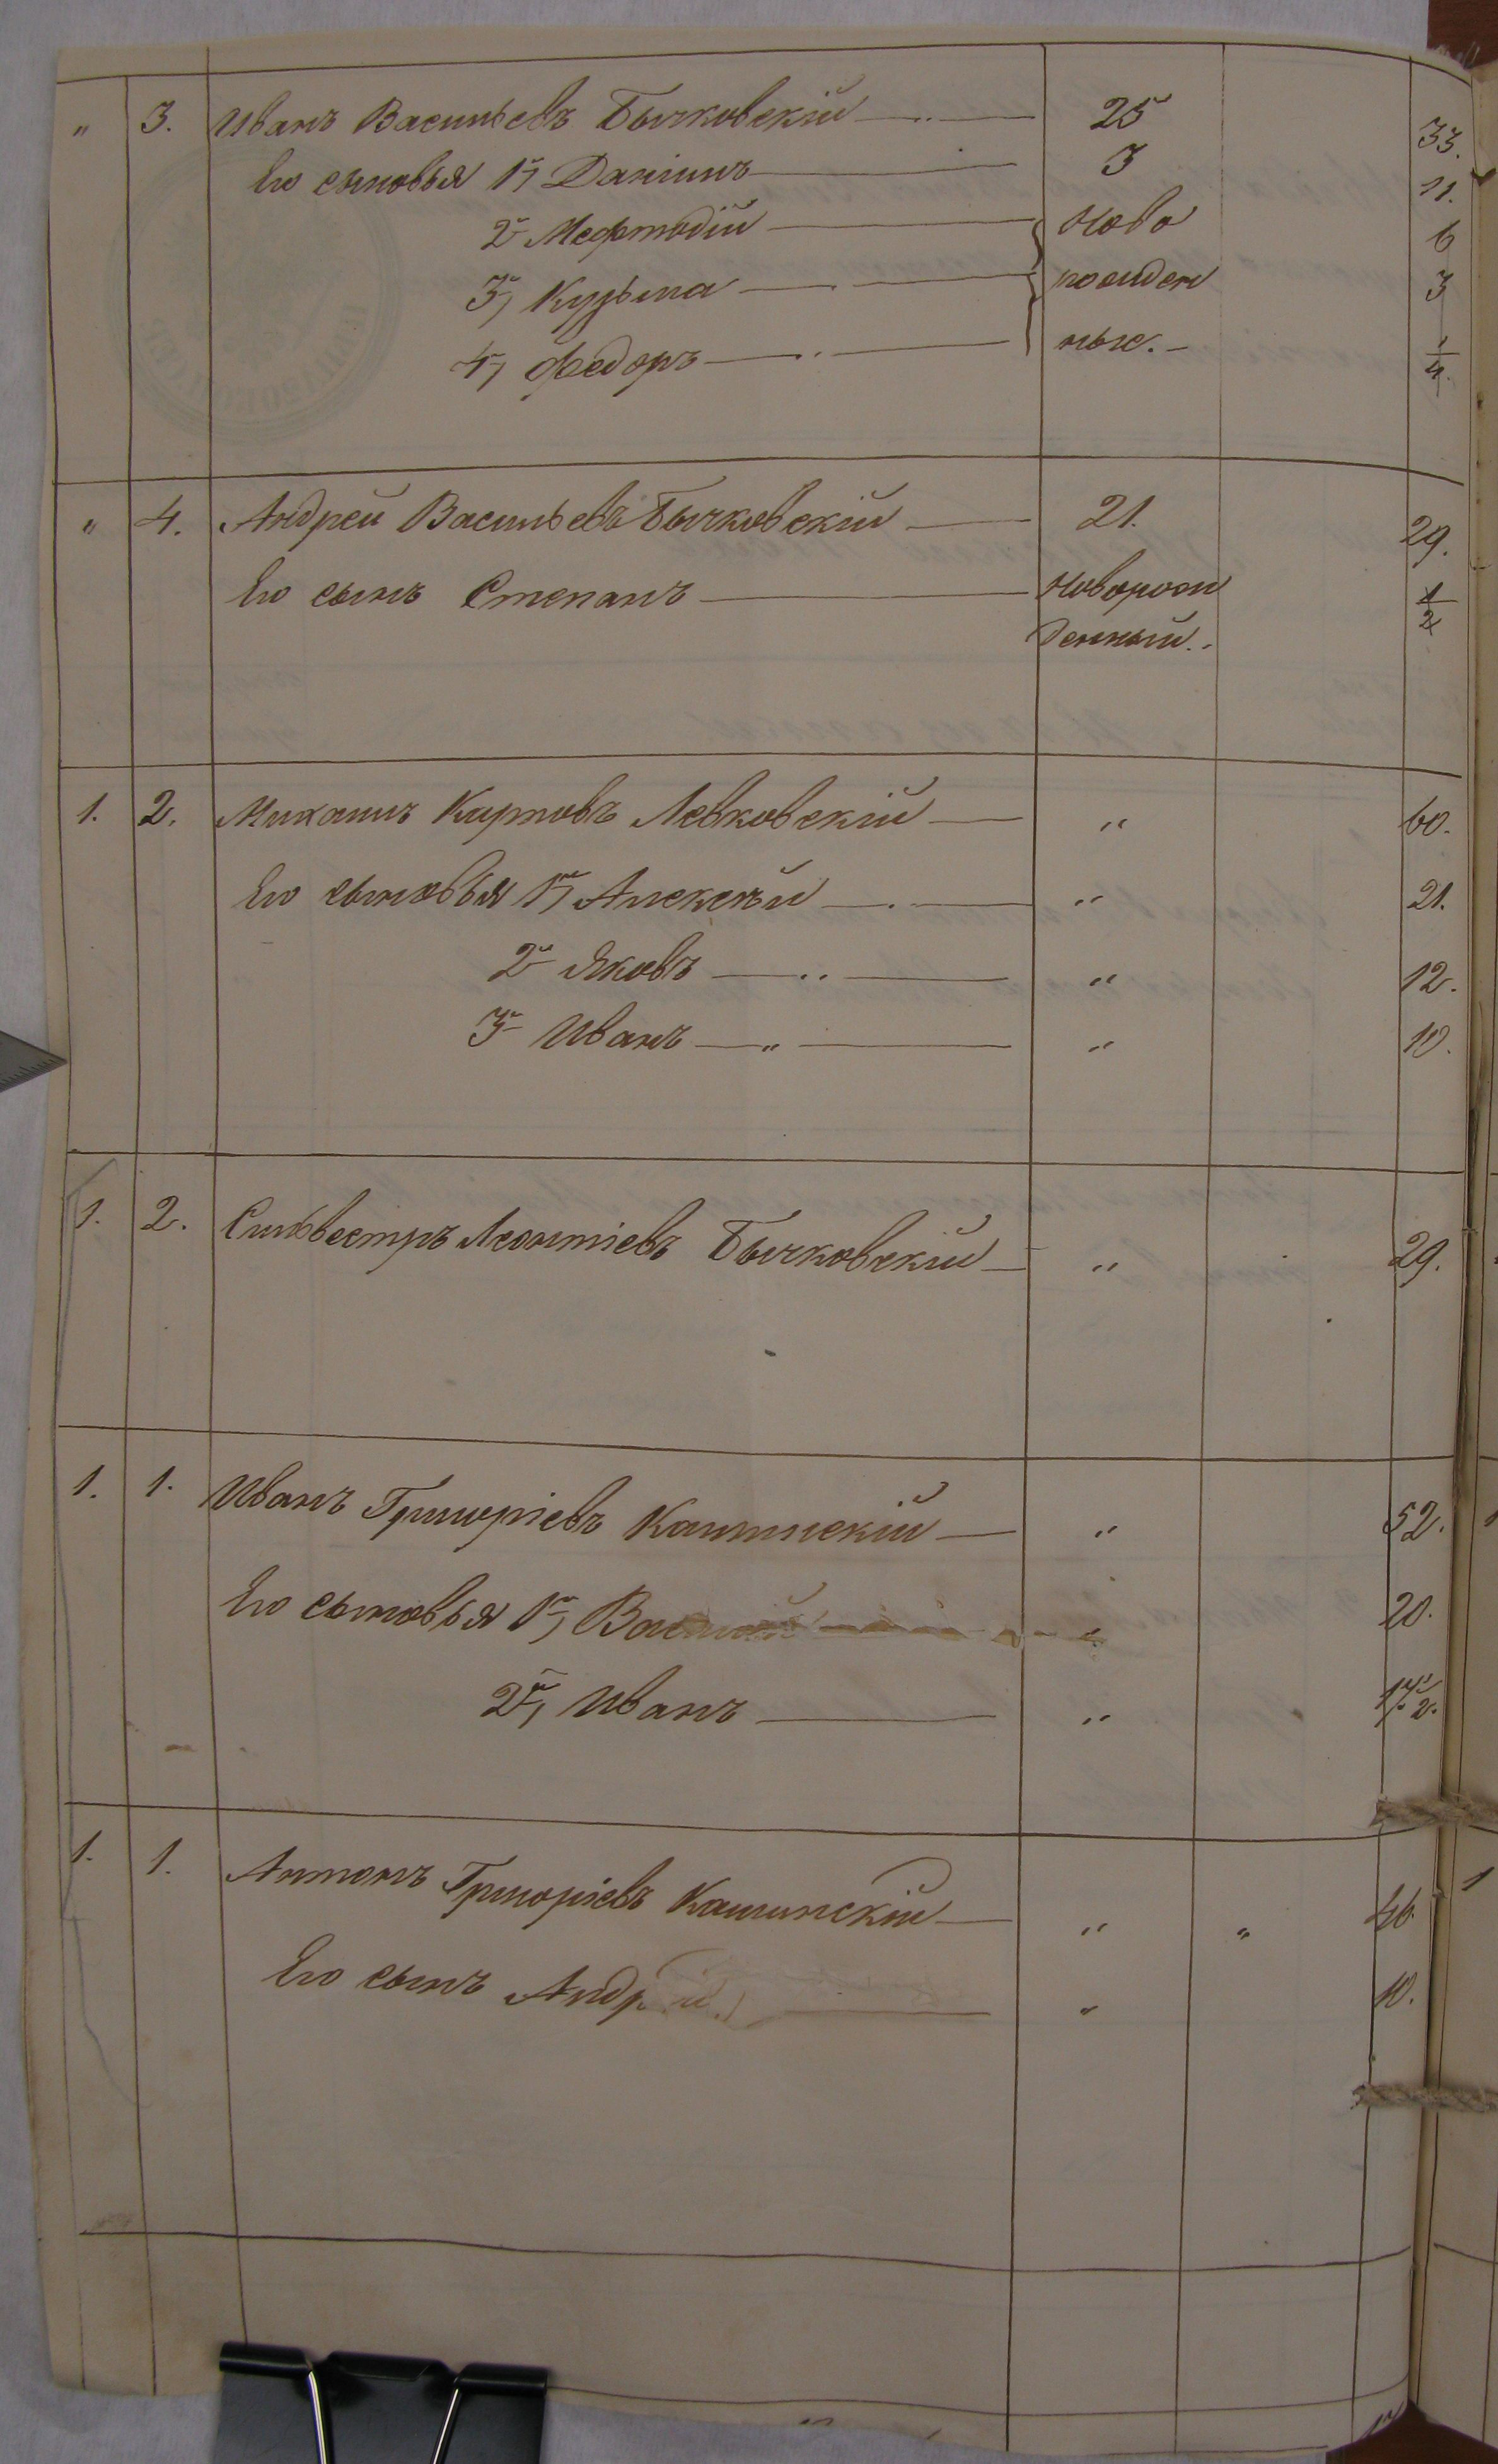 " 3. Иванъ Васильевъ Бычковскій 25 33.
Его сыновья 1й Даніилъ 3 11.
2й Мефтодій Ново 6
3й Кузьма рожден 3
4й Федоръ ные. 1/4
" 4. Андрей Васильевъ Бычковскій 21. 29.
Его сынъ Степанъ Новорож 1/2
денный.
1. 2. Михаилъ Карповъ Левковскій " 60.
Его сыновья 1й Алексѣй " 21.
2й Яковъ " 12.
3й Иванъ " 10.
1. 2. Сильвестръ Леонтіевъ Бычковскій " 29.
1. 1. Иванъ Григоріевъ Калинскій " 52.
Его сыновья 1й " 20.
2й Иванъ "
1. 1. Антонъ Григоріевъ Калинскій " " 46.
Его сынъ Андрей " 10.